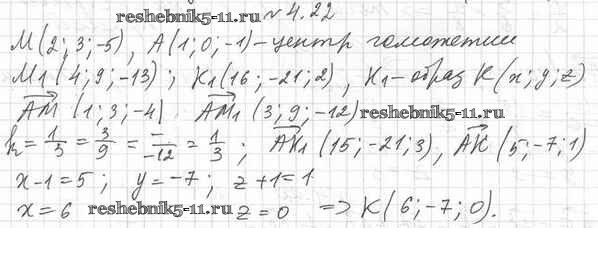 reshebnik5-11.ru № 4.22
M(2; 3; -5), A(1; 0; -1) - центр гомотетии
M₁(4; 9; -13); K₁(16; -21; 2), K₁ - образ K(x; y; z)
AM (1; 3; -4) AM₁ (3; 9; -12) reshebnik5-11.ru
k = 1/3 = 3/9 = -/-12 = 1/3; AK₁ (15; -21; 3), AK (5; -7; 1)
x - 1 = 5; y = -7; z + 1 = 1
x = 6 reshebnik5-11.ru z = 0 => K(6; -7; 0).